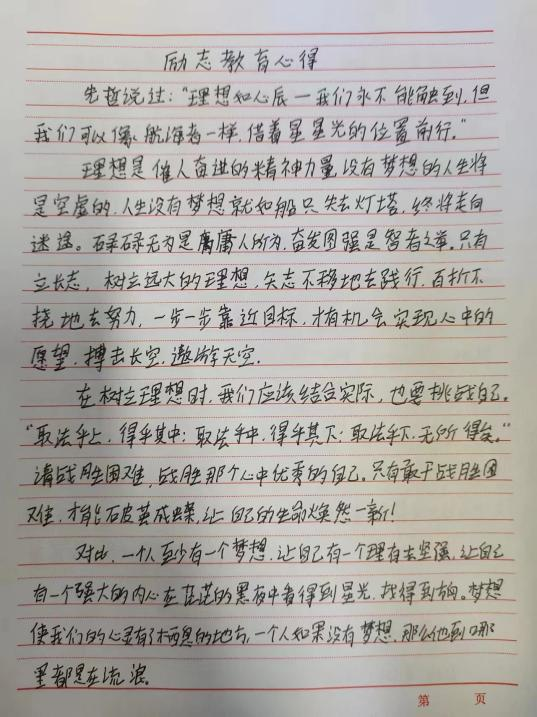 励志教育心得
先哲说过："理想如心辰一我们永不能触到,但
我们可以像航海者一样,借着星星光的位置前行。"
理想是催人奋进的精神力量,没有梦想的人生将
是空虚的,人生没有梦想就如船只失去灯塔,终将走向
迷途。碌碌无为是庸庸人所为,奋发图强是智者之举。只有
立长志,树立远大的理想,矢志不移地去践行,百折不
挠地去努力,一步一步靠近目标,才有机会实现心中的
愿望,搏击长空,遨游天空.
在树立理想时,我们应该结合实际,也要挑战自己。
"取法乎上,得乎其中;取法乎中,得乎其下;取法乎下,无所得矣。"
请战胜困难,战胜那个心中优秀的自己。只有敢于战胜困
难,才能破茧成蝶,让自己的生命焕然一新!
对此,一人至少有一个梦想,让自己有一个理有去坚强,让自己
有一个强大的内心在茫茫的黑夜中看得到星光,找得到方向。梦想
使我们的心灵有了栖息的地方,一个人如果没有梦想,那么他到哪
里都是在流浪。
第 页